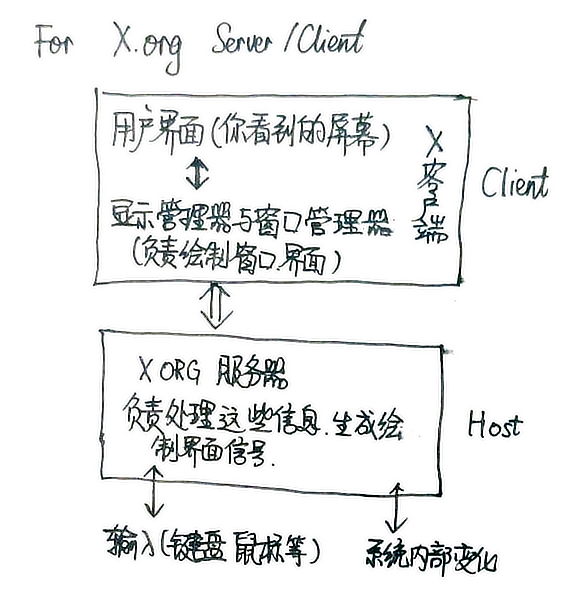 For X.org Server/Client
用户界面(你看到的屏幕)
显示管理器与窗口管理器
(负责绘制窗口界面)
X客户端
Client
X ORG 服务器
负责处理这些信息.生成绘
制界面信号.
Host
输入(键盘 鼠标等)
系统内部变化